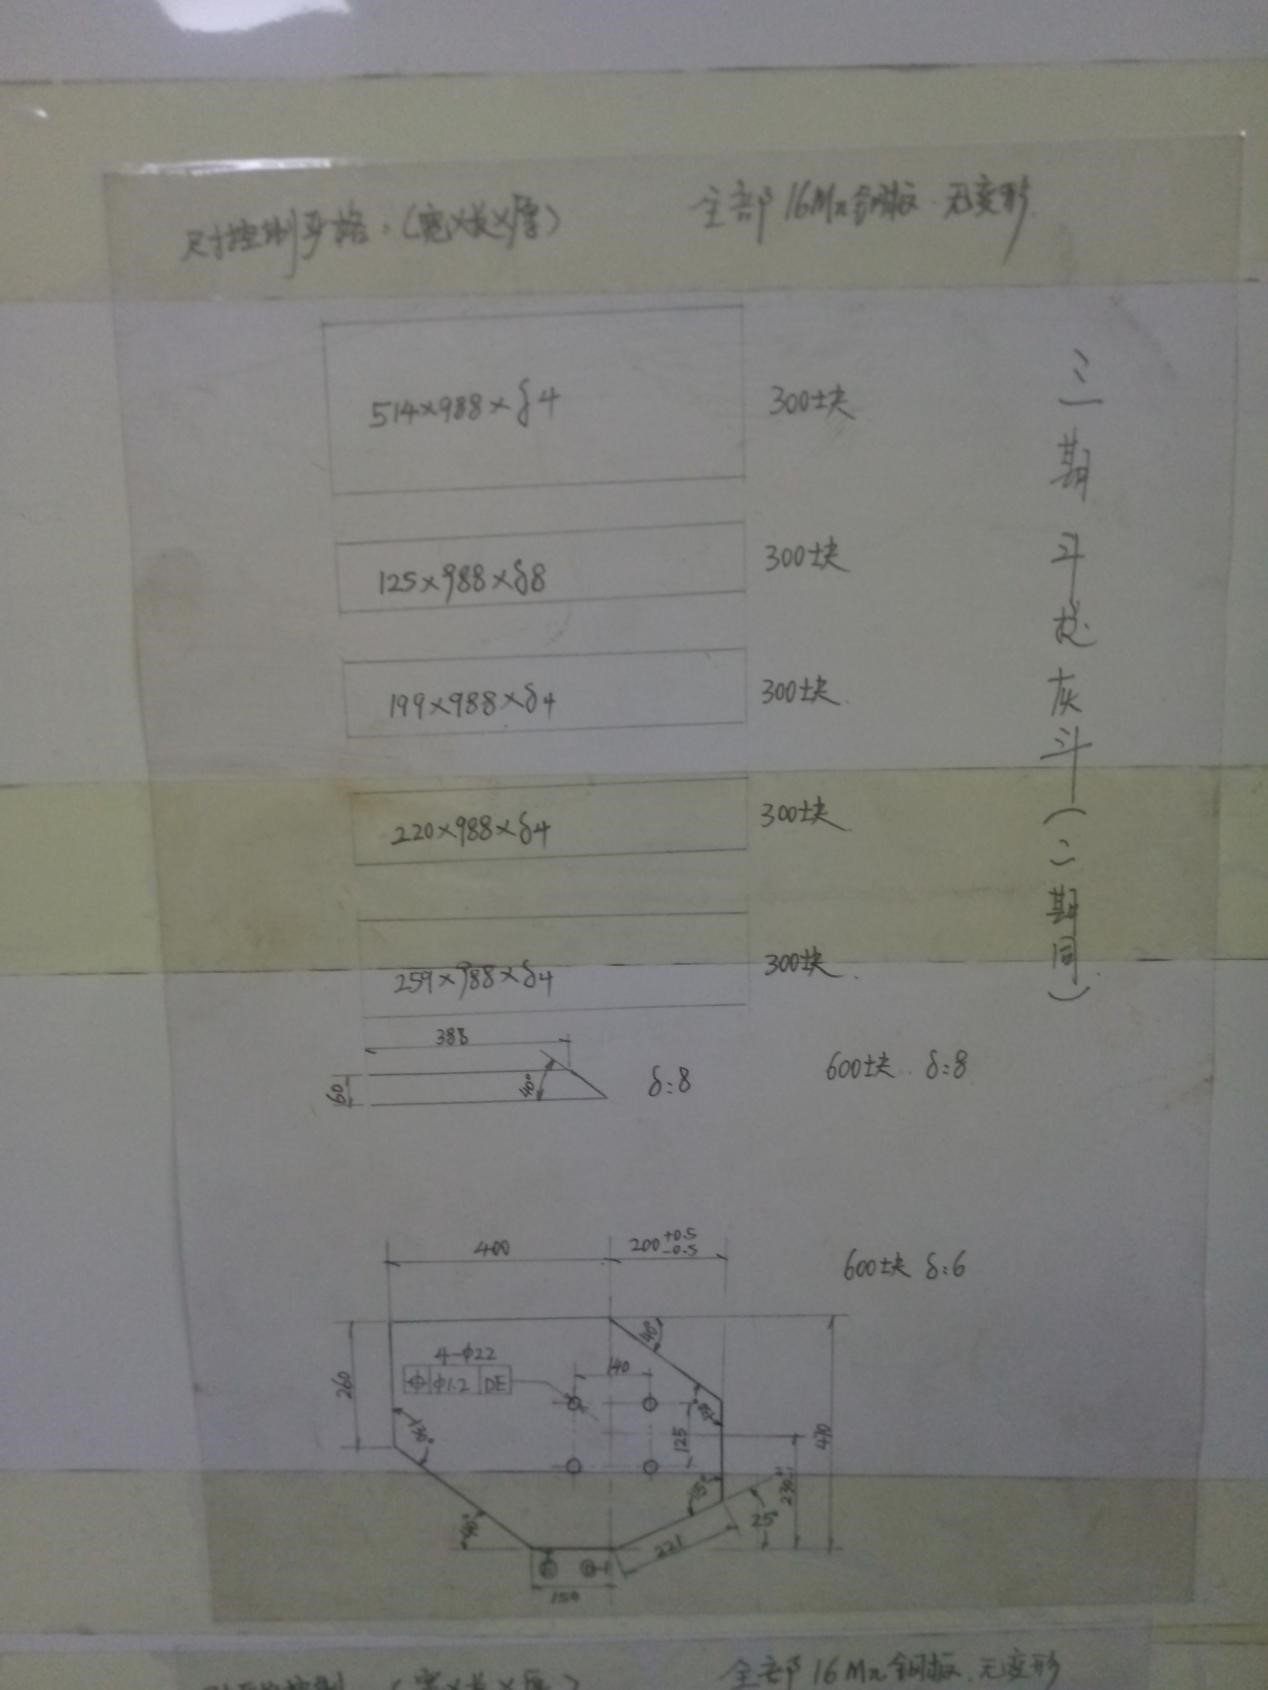 尺寸控制严格：（宽×长×厚）
全部16Mn钢板.无变形.
514×988×δ4
300块
125×988×δ8
300块
199×988×δ4
300块.
220×988×δ4
300块.
259×988×δ4
300块.
三期斗提灰斗（二期同）
388
60
40°
δ:8
600块 . δ:8
400
200 +0.5 -0.5
600块 δ:6
260
4-φ22
⌖ φ1.2 DE
140
40°
125
470
230
25°
40°
221
150
全部16Mn钢板.无变形
（宽×长×厚）